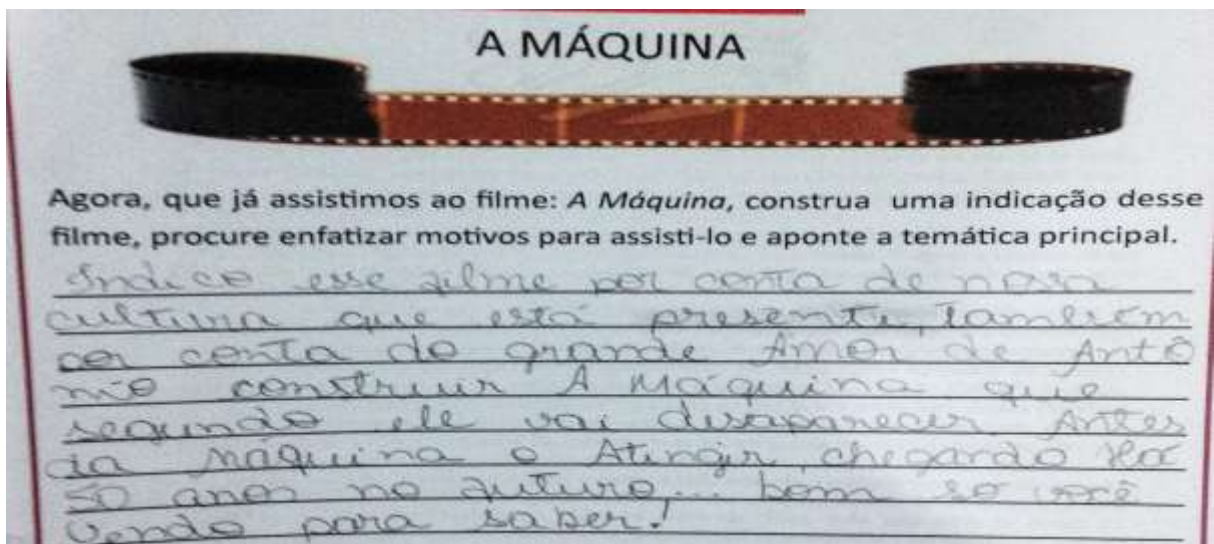 A MÁQUINA
Agora, que já assistimos ao filme: A Máquina, construa uma indicação desse
filme, procure enfatizar motivos para assisti-lo e aponte a temática principal.
Indico esse filme por conta de nossa
cultura que está presente, também
por conta do grande Amor de Antô
nio construir A Máquina que
segundo ele vai desaparecer Antes
da máquina o Atingir, chegando Há
50 anos no futuro... bom só você
vendo para saber!